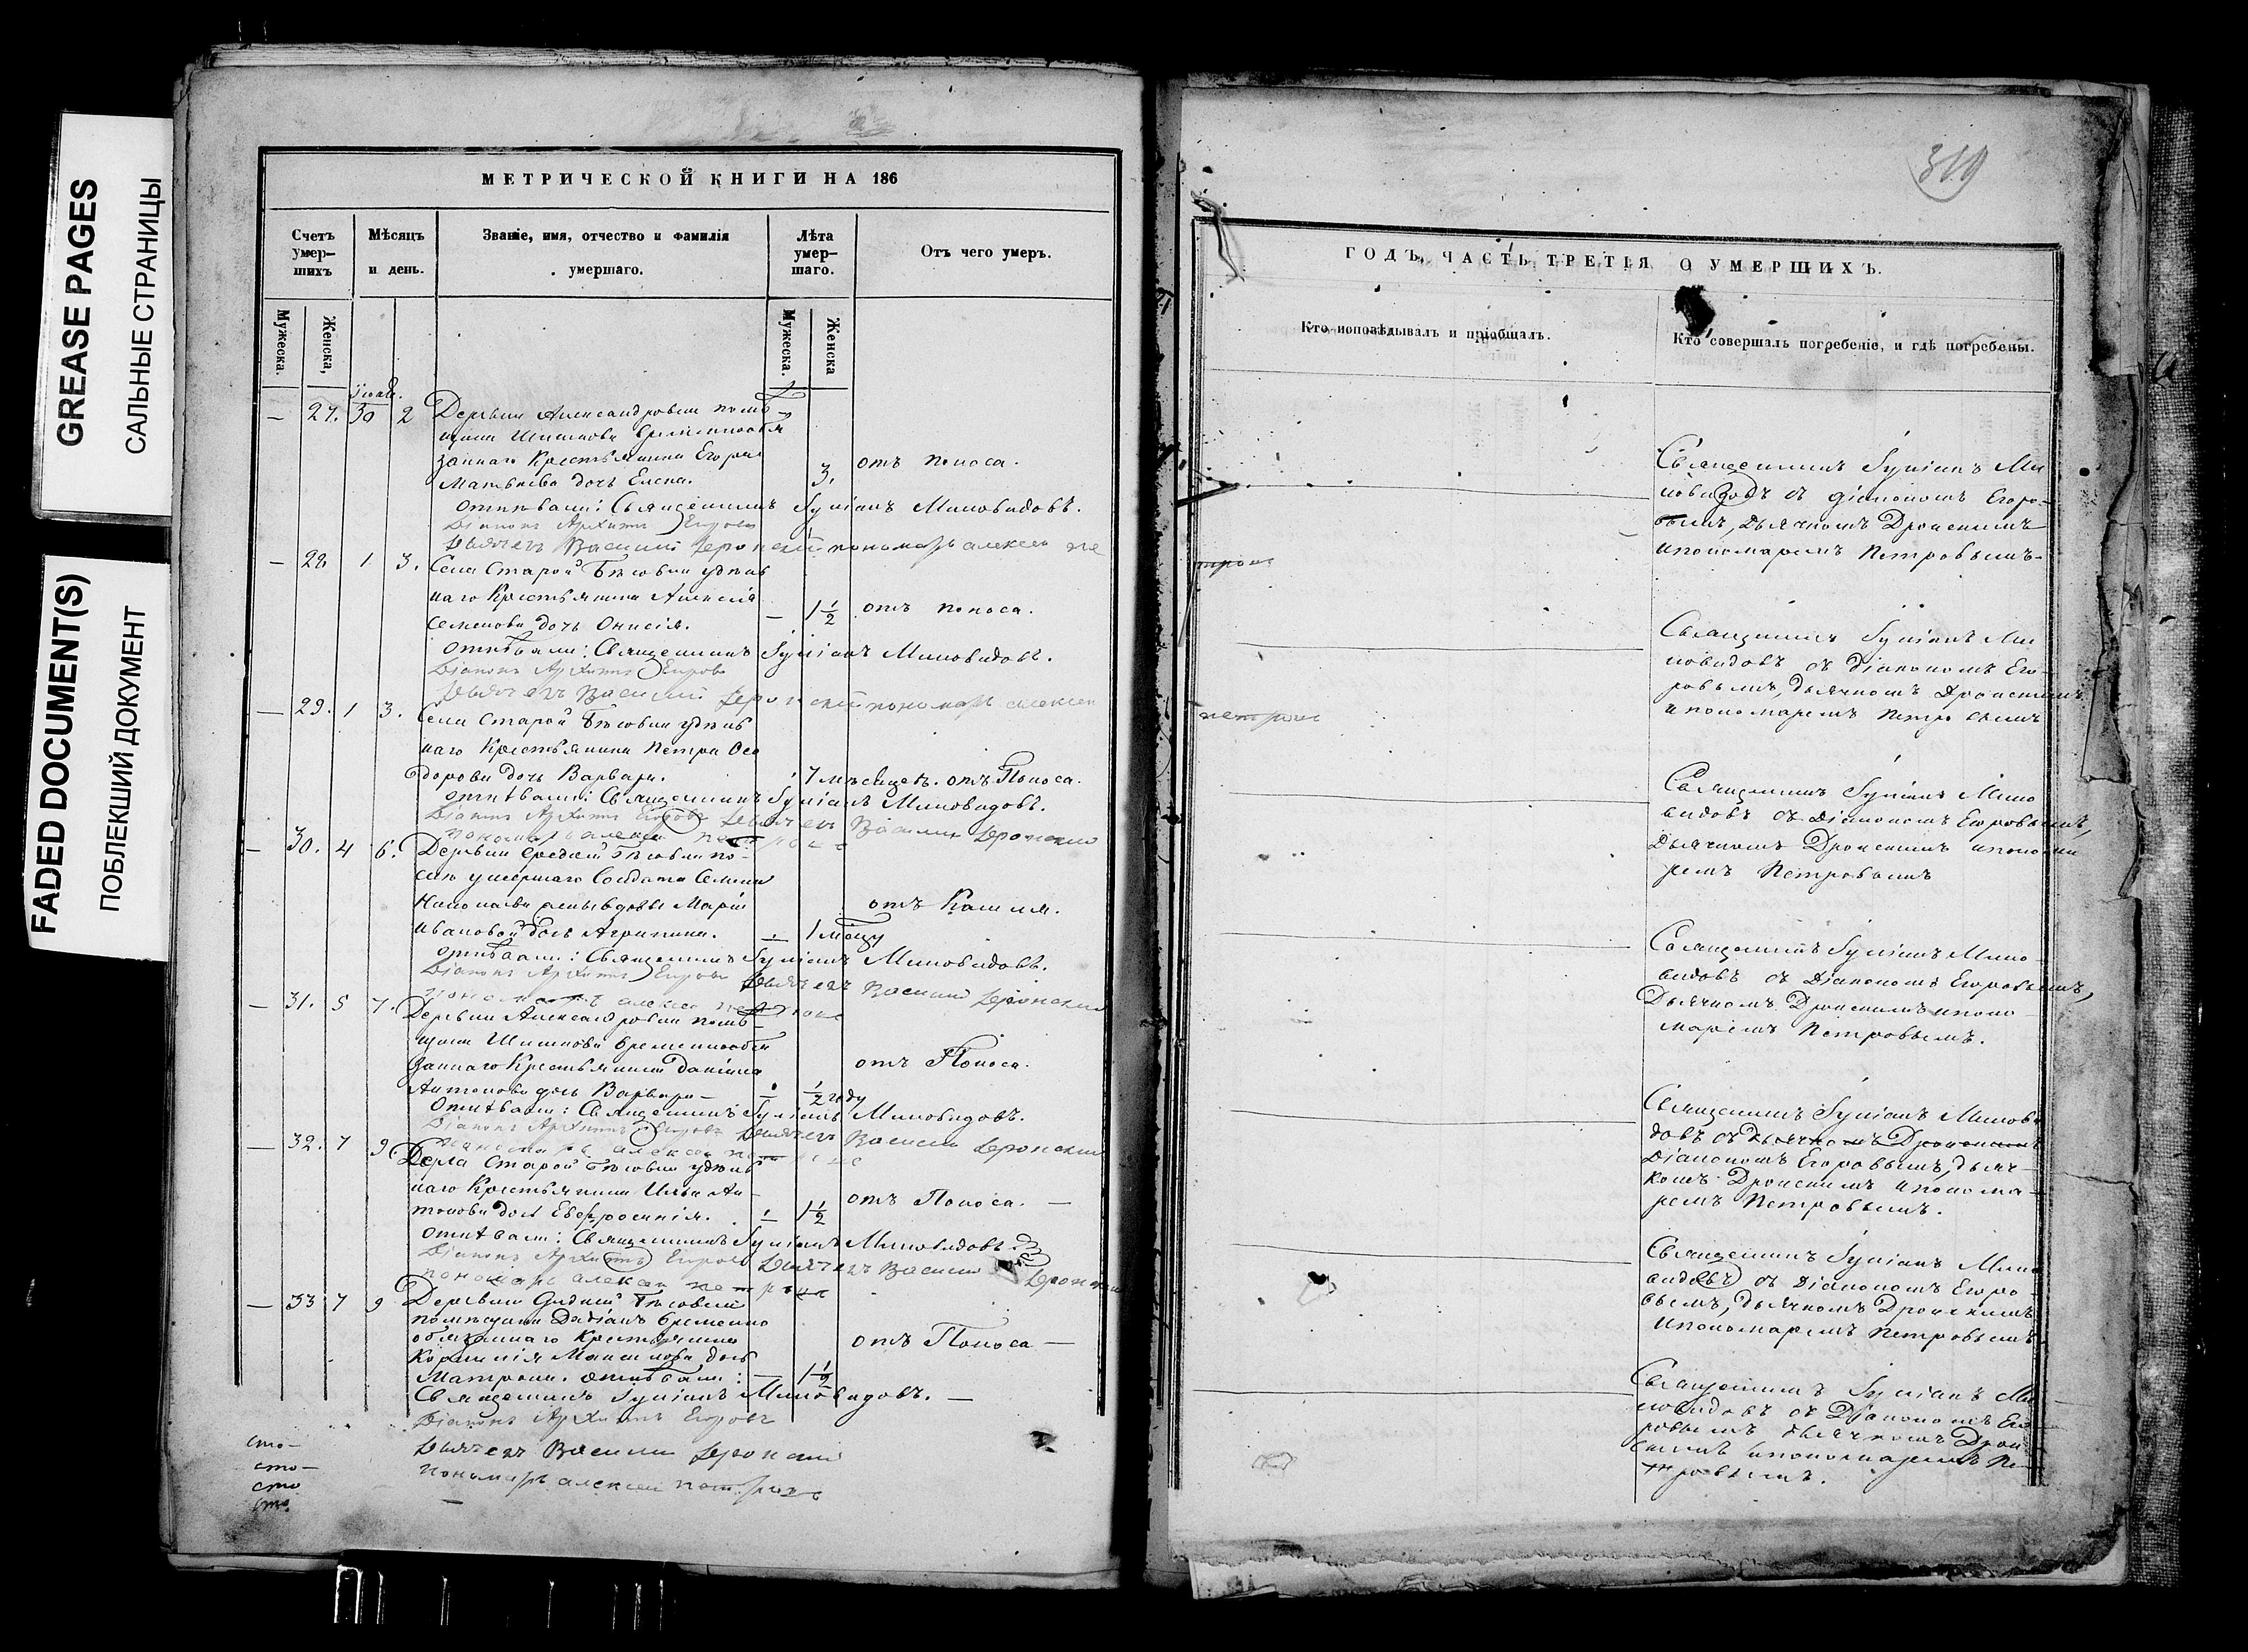 GREASE PAGES
САЛЬНЫЕ СТРАНИЦЫ
FADED DOCUMENT(S)
ПОБЛЕКШИЙ ДОКУМЕНТ
МЕТРИЧЕСКОЙ КНИГИ НА 186
Счетъ умер-шихъ
Мѣсяцъ и день.
Званіе, имя, отчество и фамилія умершаго.
Лѣта умер-шаго.
Отъ чего умеръ.
Мужеска.
Женска,
Мужеска.
Женска
— 27. 30 2 Деревни Александровки помѣ
щика Шишкова временнообя
заннаго Крестьянина Егора
Матвѣева дочь Елена. 3. отъ поноса.
отпѣвали: Священникъ Іуліанъ Миловидовъ.
Діаконъ Архипъ Егоровъ
Дьячекъ Василий пономарь алексей пе
— 28 1 3. Села Старой Бѣсовки удѣль
наго Крестьянина Алексія
Семенова дочь Онисія. — 1 1/2 отъ поноса.
отпѣвали: Священникъ Іуліанъ Миловидовъ.
Діаконъ Архипъ Егоровъ
Дьячекъ Василий пономарь алексей
— 29. 1 3. Села Старой Бѣсовки удѣль
наго Крестьянина Петра Ѳео
дорова дочь Варвара. 7 мѣсяцевъ. отъ Поноса.
отпѣвали: Священникъ Іуліанъ Миловидовъ.
Діаконъ Архипъ Егоровъ Дьячекъ Василий
пономарь алексей петровъ
— 30. 4 6. Деревни Средней Бѣсовки по-
слѣ умершаго Солдата Семена
Николаева вдовы Маріи
Ивановой дочь Агрипина. — 1 мѣсяцу отъ Кашля.
отпѣвали: Священникъ Іуліанъ Миловидовъ.
Діаконъ Архипъ Егоровъ Дьячекъ Василий
пономарь алексей петровъ
— 31. 5 7. Деревни Александровки помѣ-
щика Шишкова временнообя
заннаго Крестьянина Даніила
Антонова дочь Варвара — 1/2 году отъ Поноса.
Отпѣвали: Священникъ Іуліанъ Миловидовъ.
Діаконъ Архипъ Егоровъ Дьячекъ Василий
пономарь алексей петровъ
— 32. 7 9 Села Старой Бѣсовки удѣль
наго Крестьянина Ильи Ан-
тонова дочь Евфросинія. — 1 1/2 отъ Поноса. —
отпѣвали: Священникъ Іуліанъ Миловидовъ
Діаконъ Архипъ Егоровъ Дьячекъ Василий
пономарь алексей петровъ
— 33 7 9 Деревни Бѣсовки
помѣщика временно
обязаннаго Крестьянина
Корнилія Максимова дочь
Матрона. отпѣвали: — 1 1/2 отъ Поноса —
Священникъ Іуліанъ Миловидовъ. —
Діаконъ Архипъ Егоровъ
Дьячекъ Василий
пономарь алексей петровъ
сто—
сто—
сто
сто
319
ГОДЪ, ЧАСТЬ ТРЕТІЯ О УМЕРШИХЪ.
Кто исповѣдывалъ и пріобщалъ.
Кто совершалъ погребеніе, и гдѣ погребены.
Священникъ Іуліанъ Ми
ловидовъ съ діакономъ Егоро-
вымъ, дьячкомъ Дронскимъ
и пономаремъ Петровымъ.
Священникъ Іуліанъ Ми
ловидовъ съ діакономъ Его-
ровымъ, дьячкомъ Дронскимъ
и пономаремъ Петровымъ
петровъ
Священникъ Іуліанъ Мило
видовъ съ Діакономъ Егоровымъ,
Дьячкомъ Дронскимъ и понома
ремъ Петровымъ
Священникъ Іуліанъ Мило-
видовъ съ Діакономъ Егоровымъ,
Дьячкомъ Дронскимъ и поно
маремъ Петровымъ.
Священникъ Іуліанъ Милови
довъ съ дьячкомъ Дронскимъ
Діакономъ Егоровымъ, дьяч-
комъ Дронскимъ и понома-
ремъ Петровымъ.
Священникъ Іуліанъ Мило
видовъ съ Діакономъ Егоро-
вымъ, дьячкомъ Дронскимъ
и пономаремъ Петровымъ
Священникъ Іуліанъ Ми
ловидовъ съ Діакономъ Его
ровымъ дьячкомъ Дрон
скимъ и пономаремъ Пе-
тровымъ.